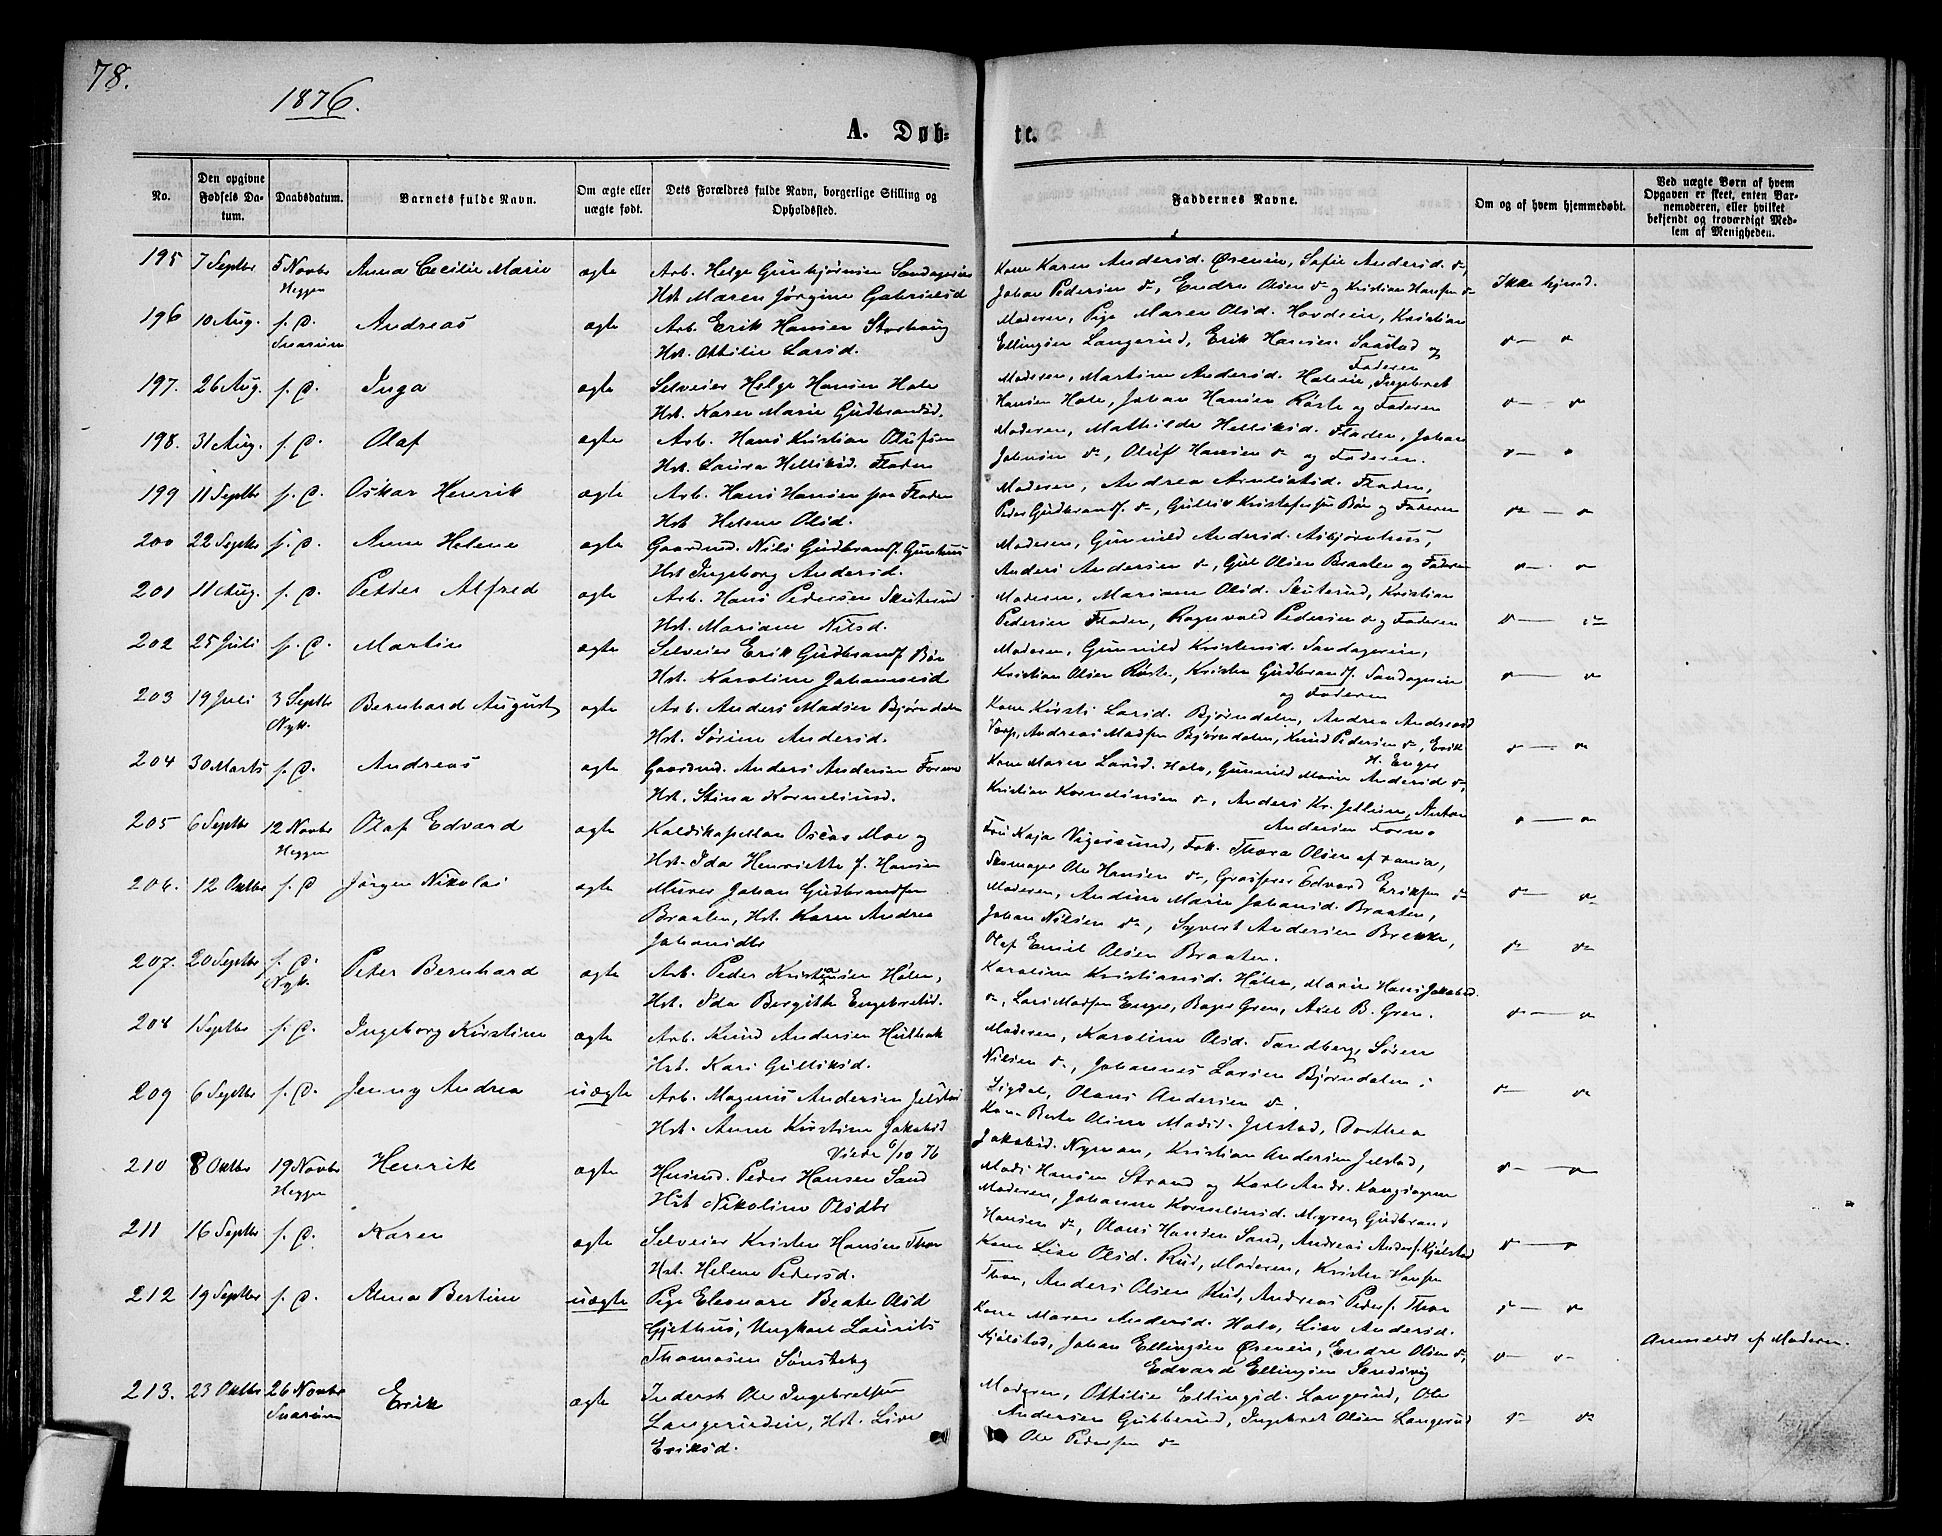 78.
1876.
A. Døb-
te.
No.
Den opgivne Fødsels Datum.
Daabsdatum.
Barnets fulde Navn.
Om ægte eller uægte født.
Dets Forældres fulde Navn, borgerlige Stilling og Opholdssted.
Faddernes Navne.
Om og af hvem hjemmedøbt.
Ved uægte Børn af hvem Opgaven er skeet, enten Barnemoderen, eller hvilket bekjendt og troværdigt Medlem af Menigheden.
195 7 Septbr 5 Novbr Anna Cecilie Marie ægte Arb. Helge Gunbjørnsen Sandageren
Heggen Hst. Maren Jørgine Gabrielsd
Kone Karen Andersd. Ørenein, Sofie Andersd. do,
Johan Pedersen do, Endre Olsen do og Kristian Hansen do Ikke hjemd.
196 10 Aug. s. D. Andreas ægte Arb. Erik Hansen Storhaug
Snarum Hst. Ottilie Larsd.
Moderen, Pige Maren Olsd. Hovdein, Kristian
Ellingsen Langerud, Erik Hansen Saastad og
Faderen
197. 26 Aug. s. D. Inga ægte Selveier Helge Hansen Hole
Hst. Karen Marie Gudbrandsd.
Moderen, Martine Andersd. Holein, Ingebret
Hansen Hole, Johan Hansen Røste og Faderen
198. 31 Aug. s. D. Olaf ægte Arb. Hans Kristian Olufsen
Hst. Laura Helliksd. Floden
Moderen, Mathilde Helliksd. Floden, Johan
Johnsen do, Oluf Hansen do og Faderen.
199 11 Septbr s. D. Oskar Henrik ægte Arb. Hans Hansen paa Floden
Hst Helene Olsd.
Moderen, Andrea Floden,
Peder Gudbrands. do, Gullik Kristofersen Bøe og Faderen
200 22 Septbr s. D. Anne Helene ægte Gaardmd. Nils Gudbrands. Gunhus
Hst Ingeborg Andersd.
Moderen, Gunnild Andersd. Asbjørnhus,
Anders Andersen do, Gul Olsen Braaten og Faderen
201 11 Aug. s. D. Petter Alfred ægte Arb. Hans Pedersen Skuterud
Hst. Mariane Nilsd.
Moderen, Mariane Olsd. Skuterud, Kristian
Pedersen Floden, Ragnvald Pedersen do og Faderen
202 25 Juli s. D. Martin ægte Selveier Erik Gudbrands. Bøe
Hst. Karoline Johannesd
Moderen, Gunnild Kristensd. Sandageren,
Kristian Olsen Røste, Kristen Gudbrands. Sandageren
og Faderen
203 19 Juli 3 Septbr Bernhard August ægte Arb. Anders Madsen Bjørndalen
Nyk. Hst. Sørine Andersd.
Kone Kirsti Larsd. Bjørndalen, Andrea Andreasd
Vorp, Andreas Madsen Bjørndalen, Knud Pedersen do, Erik
H. Enger
204 30 Marts s. D. Andreas ægte Gaardmd. Anders Andersen Formo
Hst. Stina Korneliusd.
Kone Maren Larsd. Holo, Gunnild Marie Andersd. do,
Kristian Kornelinsen do, Anders Kr. Jellum, Anton
Andersen Formo
205 6 Septbr 12 Novbr Olaf Edvard ægte Kaldskapellan Oscar Moe og
Heggen Hst. Ida Henriette f. Hansen
Fru Kaja Vigersund, Frk. Thora Olsen af
Skomager Ole Hansen do, Grosserer Edvard Eriksen do
206. 12 Oktbr s. D Jørgen Nikolai ægte Murer Johan Gudbrandsen
Braaten, Hst. Karen Andrea
Johansdtr
Moderen, Andine Marie Johansd. Braaten,
Johan Nilsen do, Syvert Andersen Brekke,
Olaf Emil Olsen Braaten.
207. 20 Septbr s. D. Peter Bernhard ægte Arb. Peder Kristensen Holen,
Nyk. Hst. Ida Bergitte Engebretsd.
Karoline Kristiansd. Holen, Marie Hans Jakobsd.
do, Lars Madsen Enger, Roger Gren, Axel B. Gren.
208 1 Septbr s. D. Ingeborg Kirstine ægte Arb. Knud Andersen Hulbak
Hst. Kari Gulliksd.
Moderen, Karoline Olsd. Sandberg, Søren
Nilsen do, Johannes Larsen Bjørndalen i
Sigdal, Olans Andersen do.
209 6 Septbr s. D. Jenny Andrea uægte Arb. Magnus Andersen Jelstad
Hst. Anne Kirstine Jakobsd
Viede 6/10 76
Kone Berte Oline Madsd. Jelstad, Dorthea
Jakobsd. Nyman, Kristian Andersen Jelstad,
Mads Hansen Strand og Karl Andr. Kongsagene
210 8 Oktbr 19 Novbr Henrik ægte Husmd. Peder Hansen Sand
Heggen Hst Nikoline Olsdtr
Moderen, Johanne Kornelinsd. Myren, Gudbrand
Hansen do, Olans Hansen Sand, Andreas Anders. Kjølstad
211 16 Septbr s. D. Karen ægte Selveier Kristen Hansen Thon
Hst. Helene Pedersd.
Kone Lise Olsd. Rud, Moderen, Kristen Hansen
Thon, Anders Olsen Rud, Andreas Peders. Thon
212 19 Septbr s. D. Alma Bertine uægte Pige Eleonore Beate Olsd
Gjethus, Ungkarl Laurits
Thomasen Sønsteby
Kone Maren Andersd. Holo, Lise Andersd.
Kjølstad, Johan Ellingsen Ørenein, Endre Olsen do,
Edvard Ellingsen Sandsvig
Anmeldt af Moderen.
213. 23 Oktbr 26 Novbr Erik ægte Inderst Ole Ingebretsen
Snarum Langerudein, Hst. Live
Eriksd.
Moderen, Ottilie Ellingsd. Langerud, Ole
Andersen Gubberud, Ingebret Olsen Langerud
Ole Pedersen do